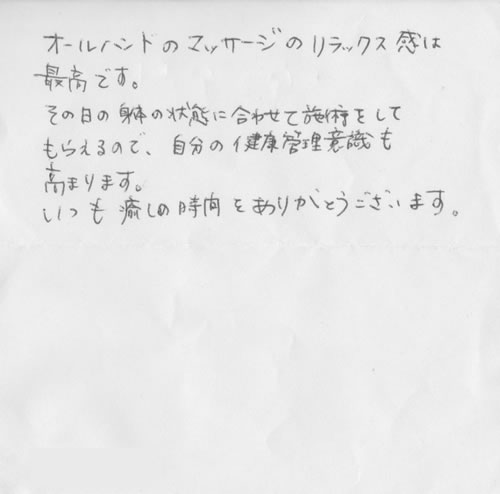 オールハンドのマッサージのリラックス感は
最高です。
その日の身体の状態に合わせて施術をして
もらえるので、自分の健康管理意識も
高まります。
いつも癒しの時間をありがとうございます。